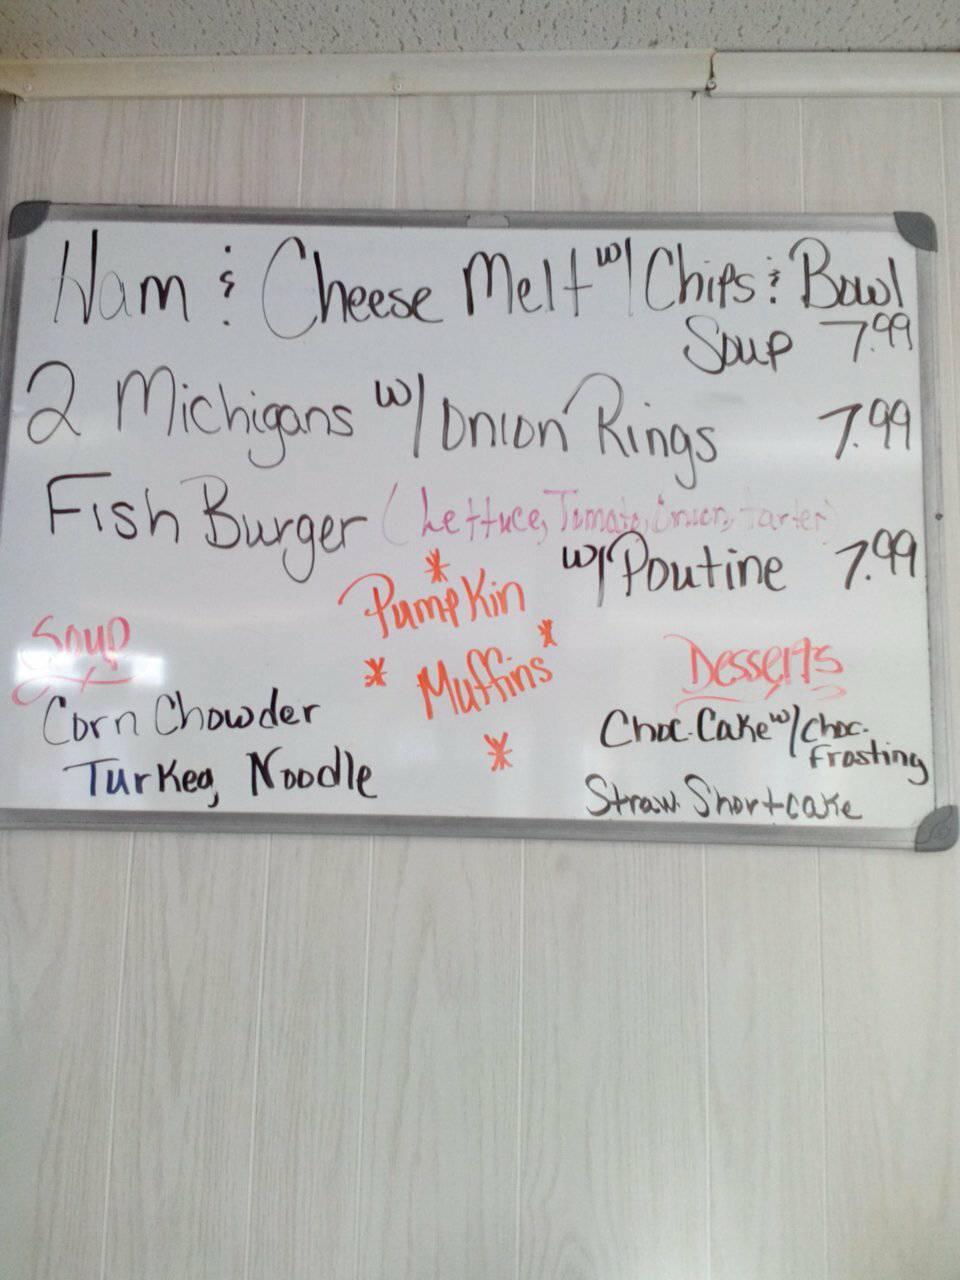 Ham & Cheese Melt w/ Chips & Bowl
Soup 7.99
2 Michigans w/ Onion Rings 7.99
Fish Burger (Lettuce, Tomato, Onion, tarter)
w/ Poutine 7.99
* Pumpkin
* Muffins *
*
Soup
Corn Chowder
Turkey Noodle
Desserts
Choc. Cake w/ Choc.
Frosting
Straw. Shortcake